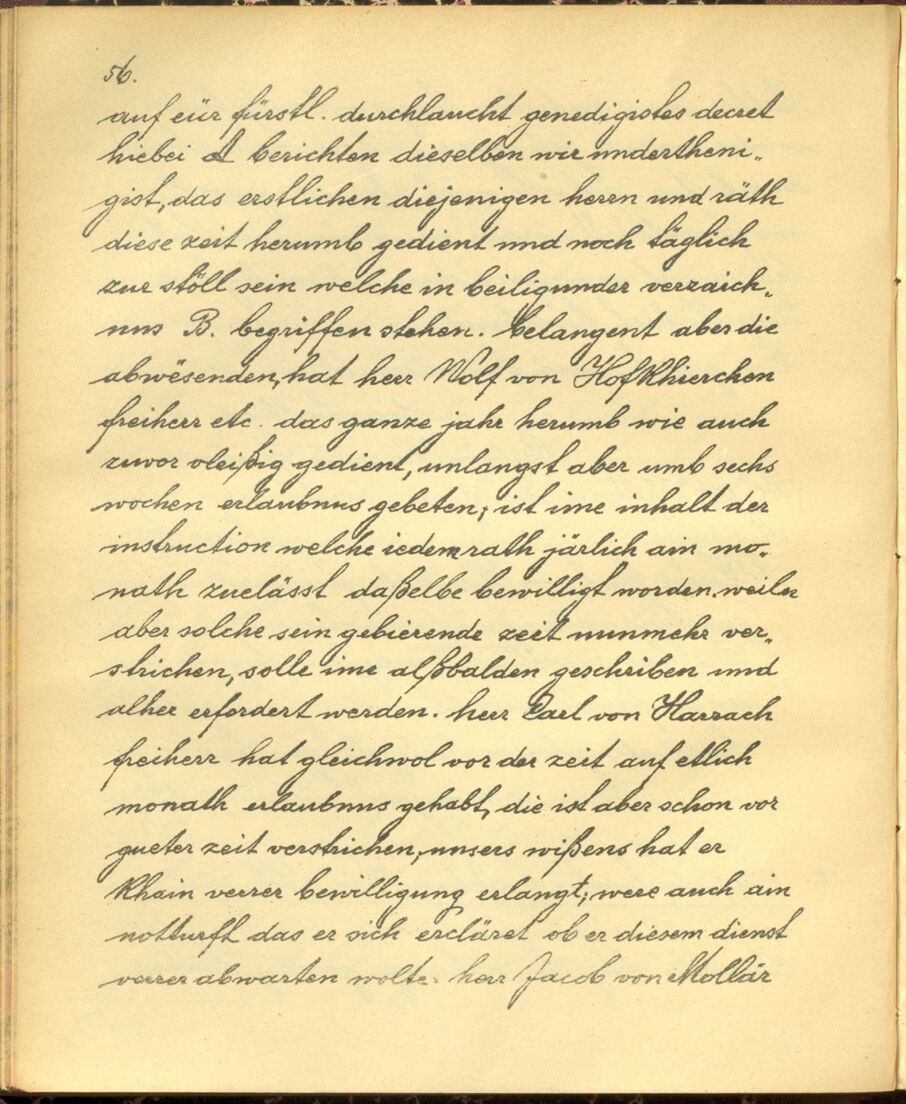 56.
auf eür fürstl. durchlaucht genedigistes decret
hiebei A berichten dieselben wir undertheni„
gist, das erstlichen diejenigen herrn und räth
diese zeit herumb gedient und noch täglich
zur stöll sein welche in beiligunder verzaich„
nus B. begriffen stehen. belangent aber die
abwësenden, hat herr Wolf von Hofkhierchen
freiherr etc. das ganze jahr herumb wie auch
zuvor vleißig gedient, unlangst aber umb sechs
wochen erlaubnus gebeten; ist ime inhalt der
instruction welche iedem rath järlich ain mo„
nath zuelässt daßelbe bewilligt worden. weiln
aber solche sein gebierende zeit nunmehr ver„
strichen, solle ime alßbalden geschriben und
alher erfordert werden. herr Carl von Harrach
freiherr hat gleichwol vor der zeit auf etlich
monath erlaubnus gehabt, die ist aber schon vor
gueter zeit verstrichen, unsers wißens hat er
khain verrer bewilligung erlangt; were auch ain
notturft das er sich ercläret ob er diesem dienst
verrer abwarten wolte. herr Jacob von Mollär